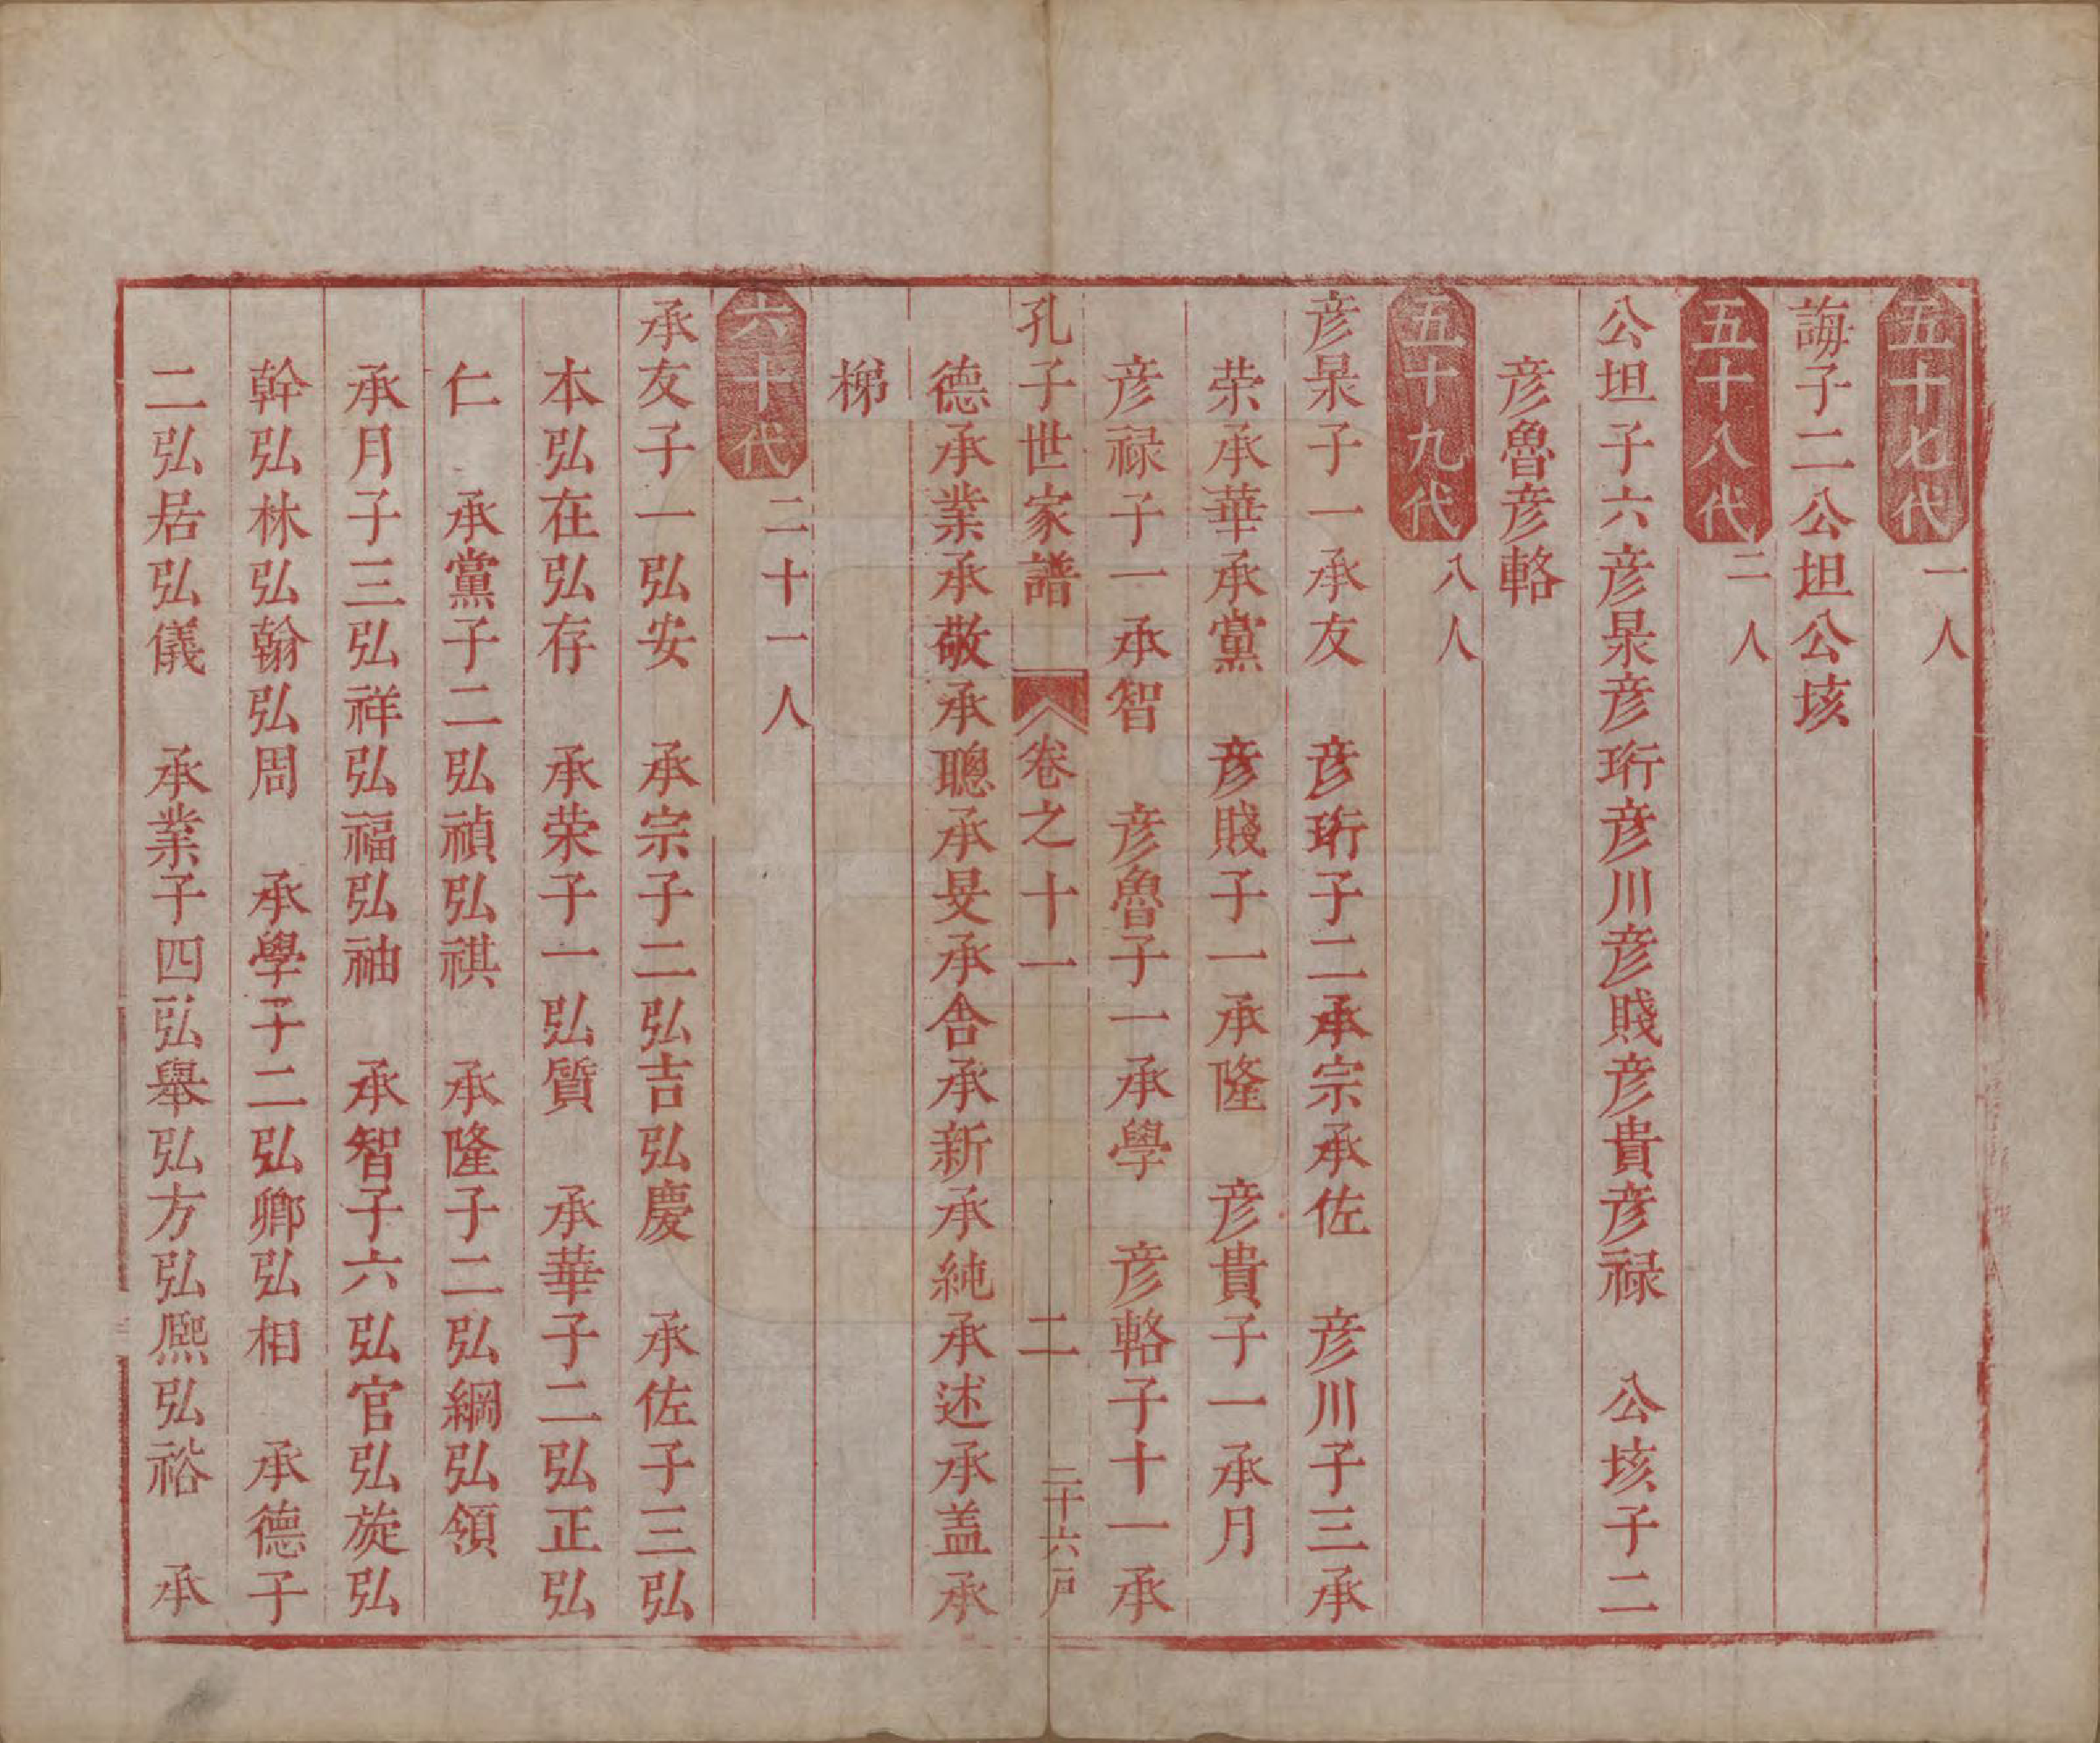 五十七代　一人
誨子二公坦公垓
五十八代　二人
公坦子六彦杲彦珩彦川彦賤彦貴彦禄　公垓子二
彦魯彦輅
五十九代　八人
彦杲子一承友　彦珩子二承宗承佐　彦川子三承
荣承華承黨　彦賤子一承隆　彦貴子一承月
彦禄子一承智　彦魯子一承學　彦輅子十一承
孔子世家譜　卷之十一　二　二十六戸
德承業承敬承聰承旻承舍承新承純承述承盖承
梯
六十代　二十一人
承友子一弘安　承宗子二弘吉弘慶　承佐子三弘
本弘在弘存　承荣子一弘質　承華子二弘正弘
仁　承黨子二弘禎弘祺　承隆子二弘綱弘領
承月子三弘祥弘福弘袖　承智子六弘官弘旋弘
幹弘林弘翰弘周　承學子二弘卿弘相　承德子
二弘居弘儀　承業子四弘舉弘方弘熈弘裕　承